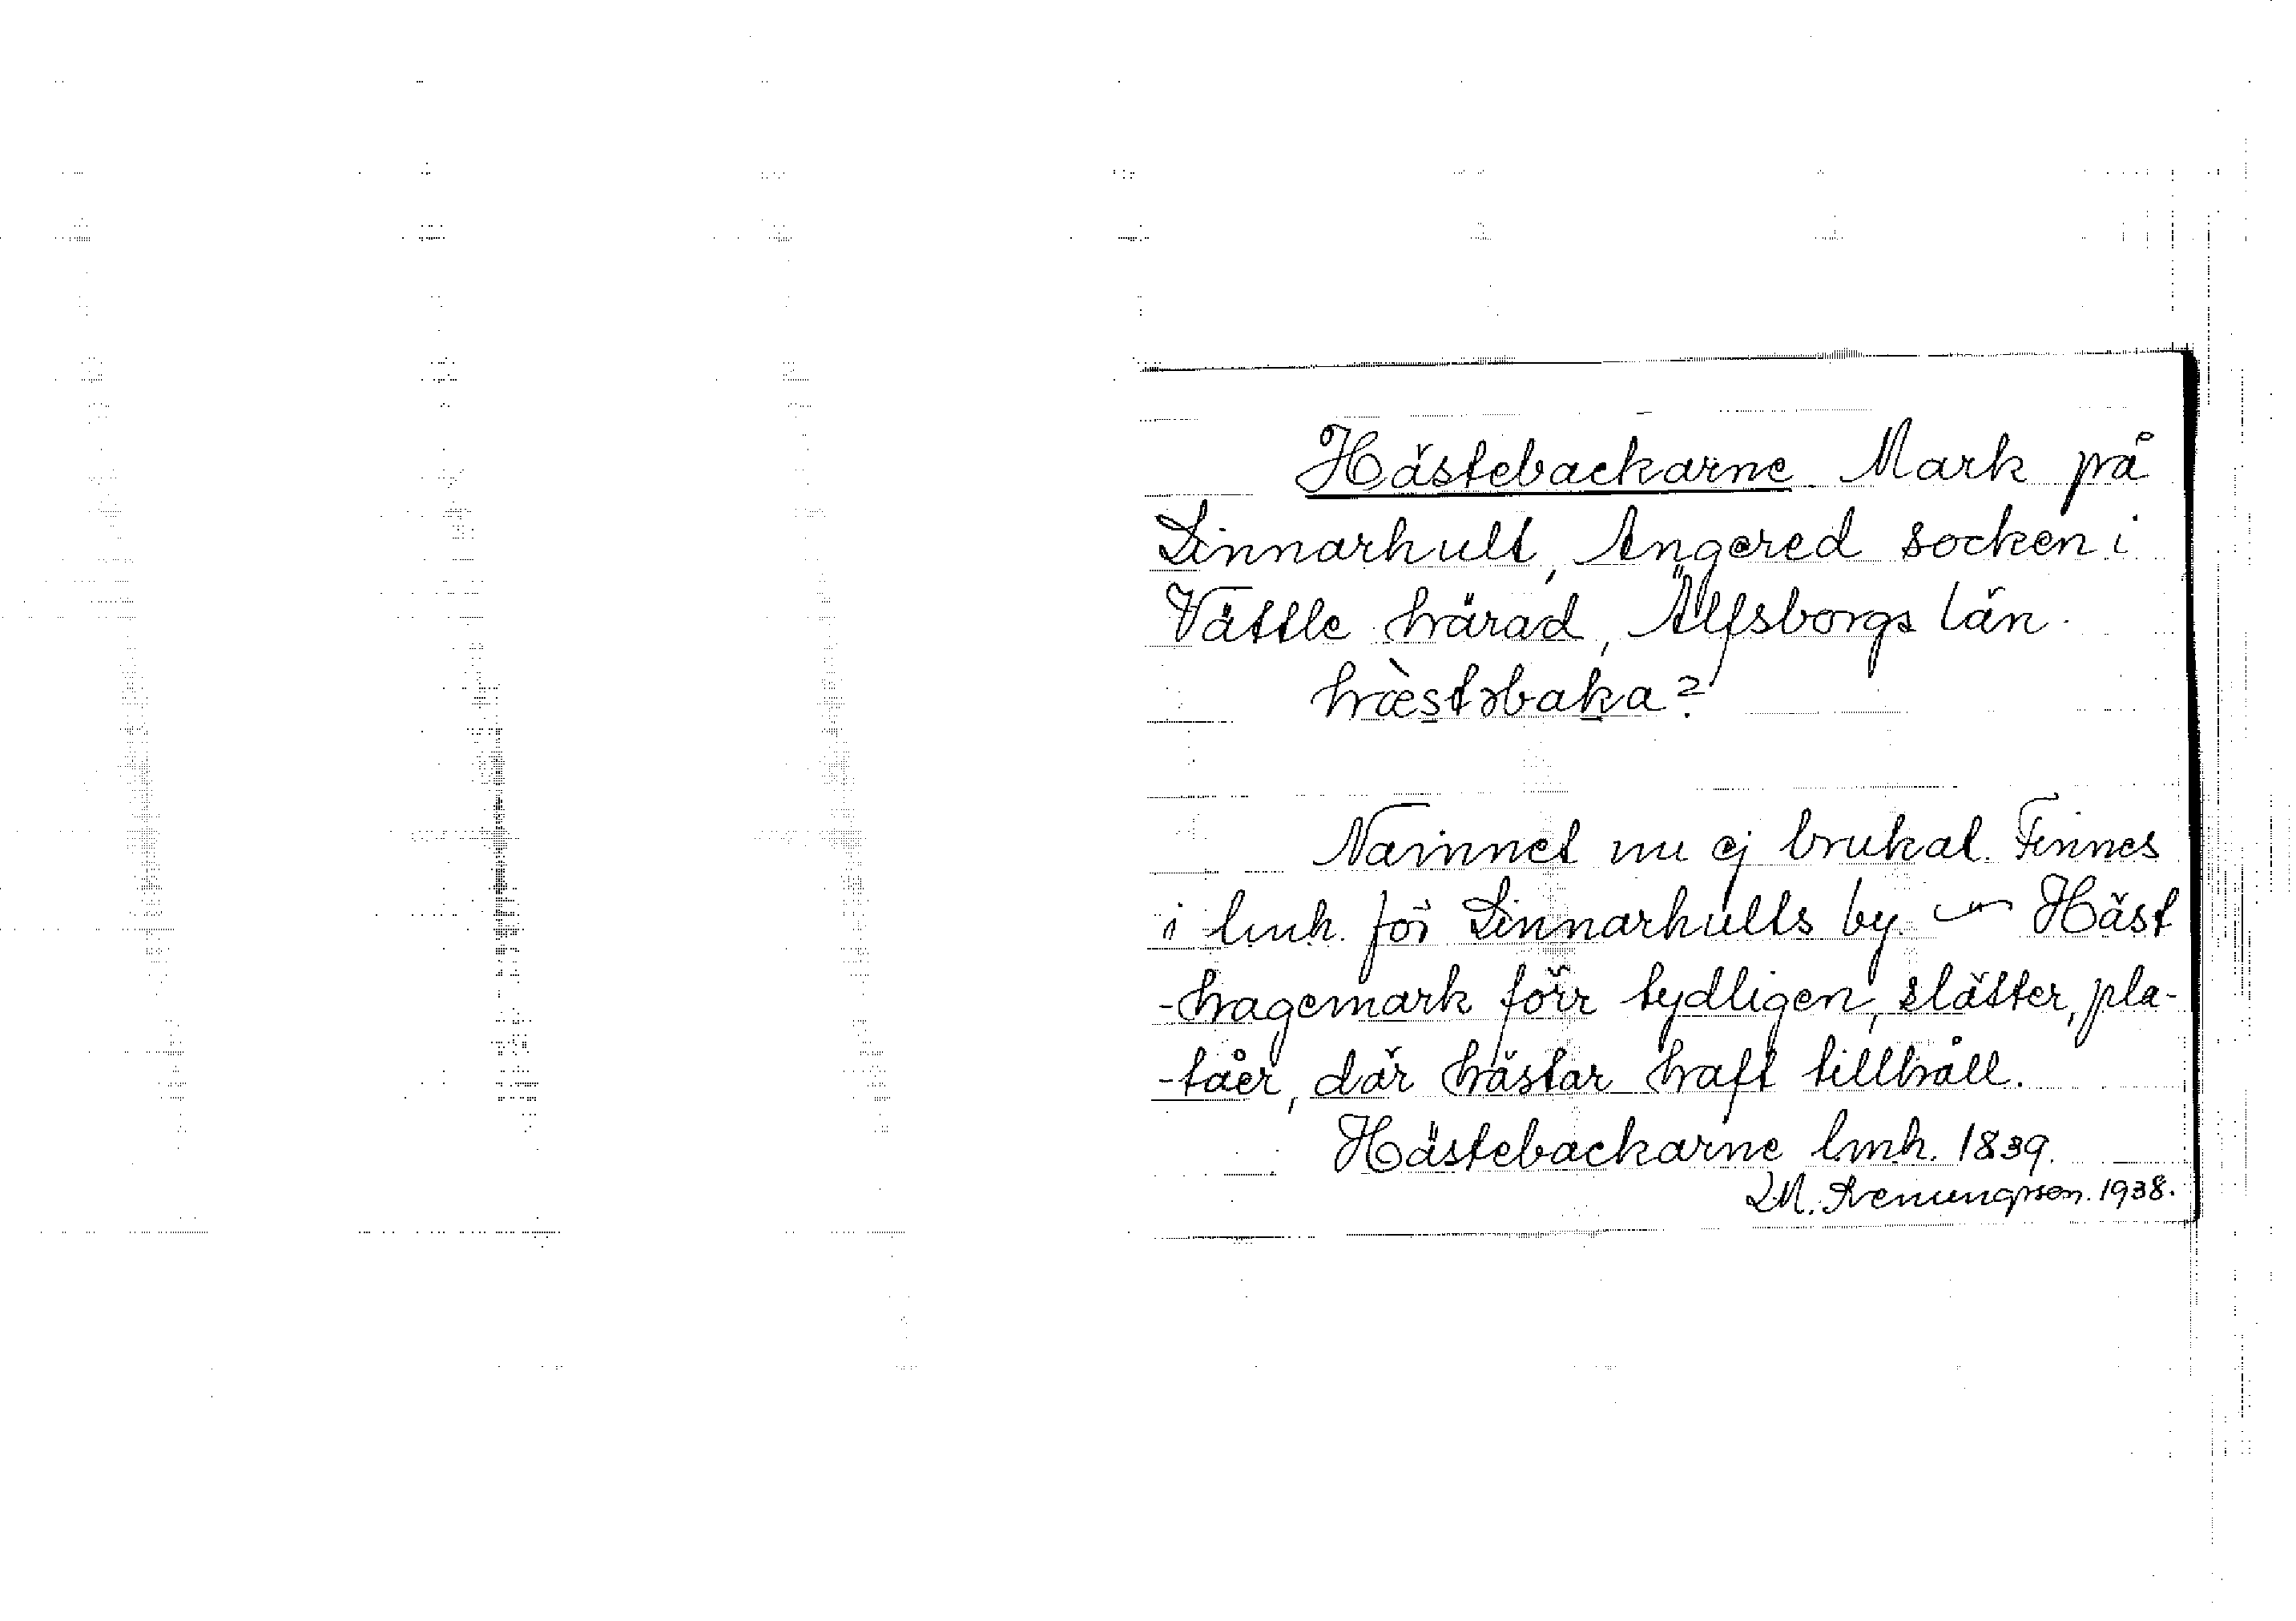 Hästebackarne. Mark på
Linnarhult, Angered socken i
Vättle härad, Älfsborgs län.
hæ̀stəbaka?
Namnet nu ej brukat. Finnes
i lmh. för Linnarhults by. — Häst
-hagemark förr tydligen, slätter, pla-
-tåer, där hästar haft tillhåll.
Hästebackarne lmh. 1839.
1938.